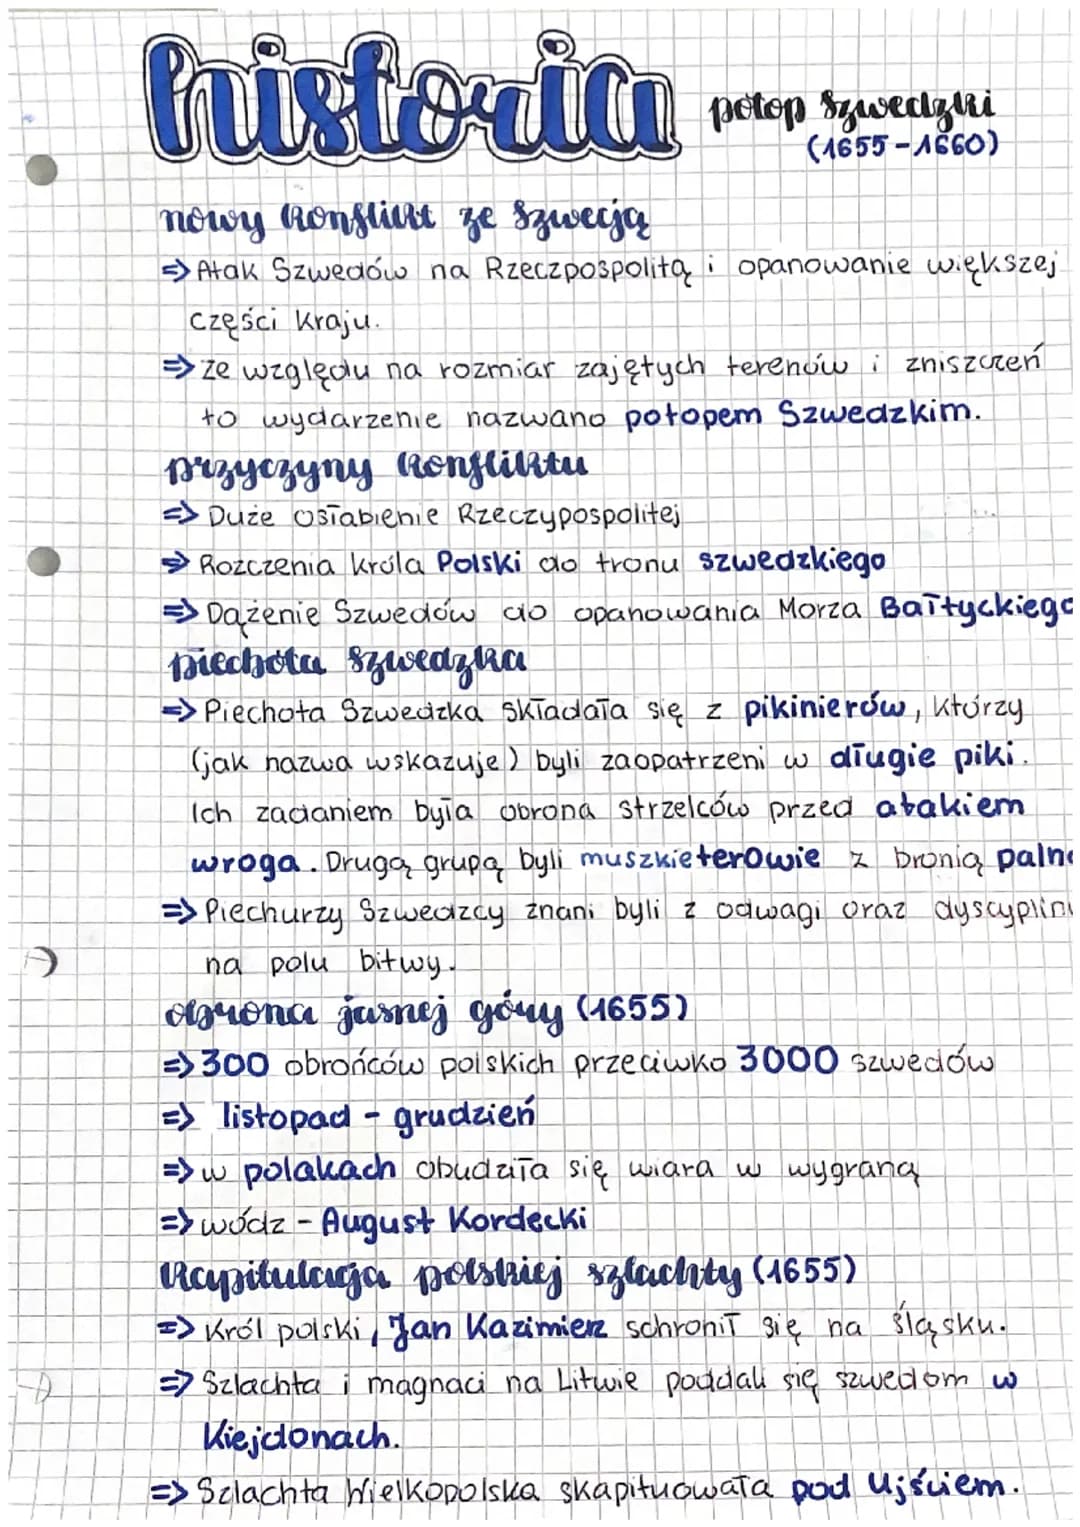 historia
potop szwedzki
(1655-1660)
nowy konflikt ze szwecją
=> Atak Szwedów na Rzeczpospolitą i opanowanie większej
części kraju.
=> ze względu na rozmiar zajętych terenów i zniszczeń
to wydarzenie nazwano potopem Szwedzkim.
przyczyny konfliktu
=> Duże osłabienie Rzeczypospolitej
=> Rozczenia króla Polski do tronu szwedzkiego
=> Dążenie Szwedów do opanowania Morza Bałtyckiego
piechota szwedzka
=> Piechota Szwedzka składała się z pikinierów, którzy
(jak nazwa wskazuje) byli zaopatrzeni w długie piki.
Ich zadaniem była obrona strzelców przed atakiem
wroga. Drugą grupą byli muszkieterowie z bronią palną
=> Piechurzy Szwedzcy znani byli z odwagi oraz dyscyplinu
na polu bitwy.
obrona jasnej góry (1655)
=> 300 obrońców polskich przeciwko 3000 szwedów
=> listopad - grudzień
=> w polakach obudziła się wiara w wygraną
=> wódz - August Kordecki
kapitulacja polskiej szlachty (1655)
=> Król polski, Jan Kazimierz schronił się na śląsku.
=> Szlachta i magnaci na Litwie poddali się szwedom w
Kiejdonach.
=> Szlachta Wielkopolska skapituowała pod Ujściem.